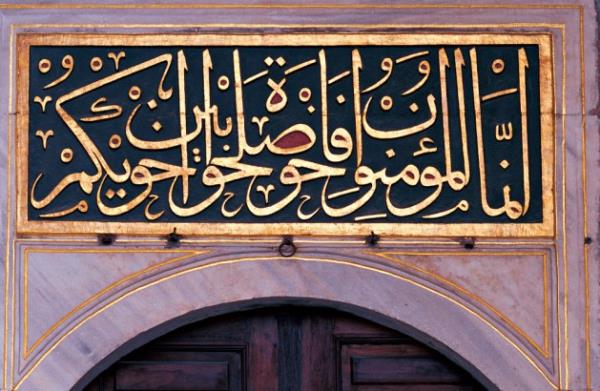 انما المؤمنون اخوة فاصلحوا بين اخويكم